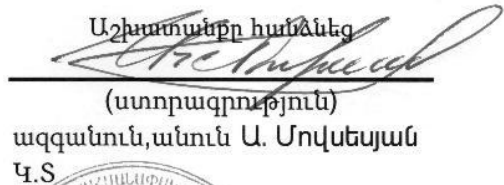 Աշխատանքը հանձնեց
(ստորագրություն)
ազգանուն,անուն Ա. Մովսեսյան
Կ.Տ